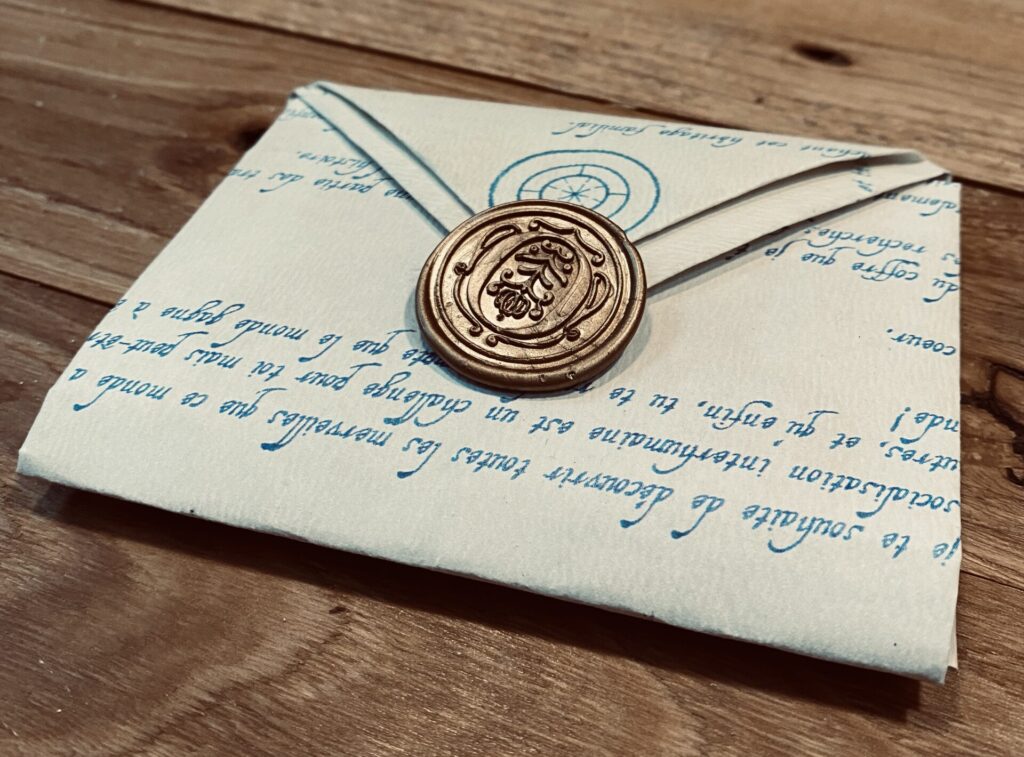 je te souhaite de découvrir toutes les merveilles que ce monde a
socialisation interhumaine est un challenge pour toi mais peut-êt
utres, et qu'enfin, tu te que le monde gagne à
nde !
coeur.
du coffre que je
recherches
partie des tra
histoire.
cet héritage familial.